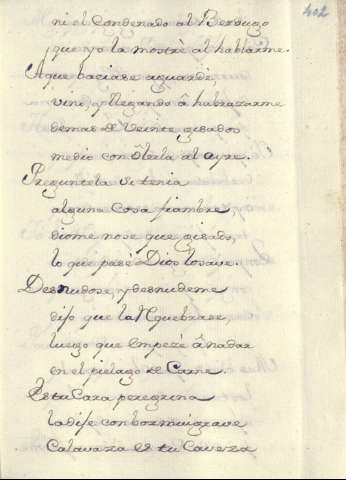 402
ni el Condenado al Berdugo
que yo la mostrè al hablarme.
A que baciase aguardè,
vino, y llegando â habrazarme
demas de Veinte gisados
medio con ôlerla al ayre.
Preguntela si tenia
alguna cosa fiambre
diome nose que gisado,
lo que pasè Dios losave.
Desnudose, y desnudeme
dijo que la Requebrase,
luego que empeze â nadar
en el pielago de Carne.
Es tu Cara peregrina
la dije con boz mui grave
Calavaza es tu Caveza